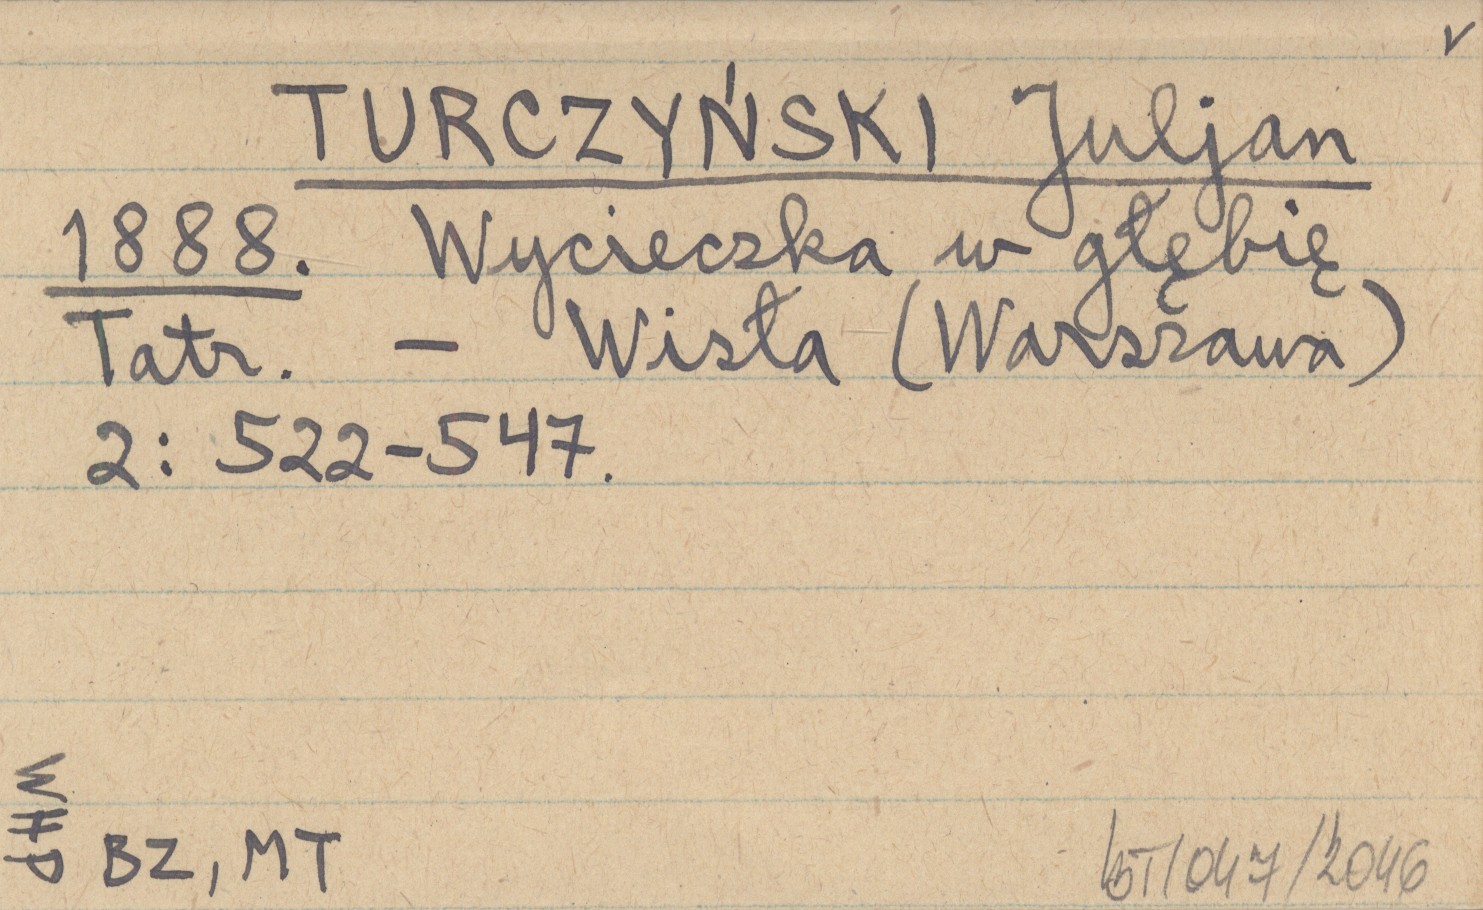 TURCZYŃSKI Juljan
1888. Wycieczka w głębię
Tatr. – Wisła (Warszawa)
2: 522-547.
WHP
BZ, MT
/047/2046